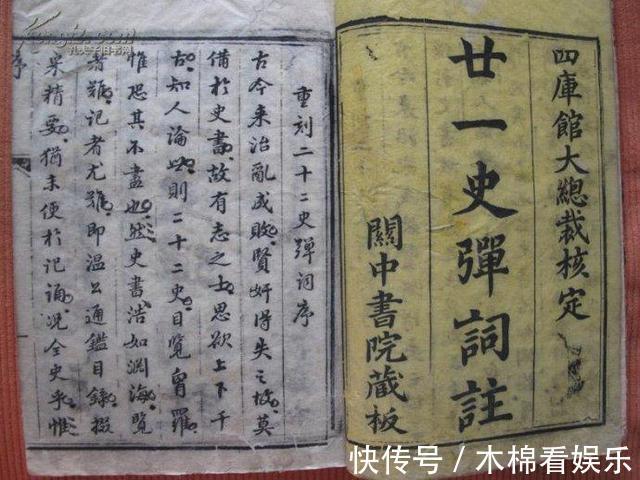 四庫館大總裁核定
廿一史彈詞註
關中書院藏板
重刻二十二史彈詞序
古今来治亂成敗賢奸得失之故莫
備於史書故有志之士思欲上下千
古知人論世則二十二史目覽胷羅
惟恐其不盡也然史書浩如淵海覽
者難記者尤難即温公通鑑目錄掇
采精要猶未便於記誦況全史乎惟
序
快传号 / 木棉看娱乐